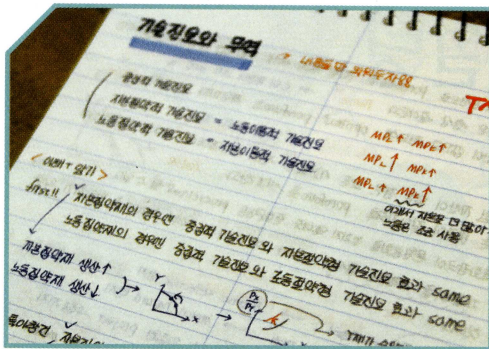 기술진보와 무역
중립적 기술진보
자본절약적 기술진보 = 노동이용적 기술진보
노동절약적 기술진보 = 자본이용적 기술진보
MPL↑ MPK↑
MPL↑ MPK↑
MPL↑ MPK↑
<이해+암기>
first!!
자본집약재의 경우엔 중립적 기술진보와 자본절약적 기술진보 효과 same
노동집약재의 경우엔 중립적 기술진보와 노동절약적 기술진보 효과 same
자본집약재 생산↑
노동집약재 생산↓
Y
X
Px
Py
X